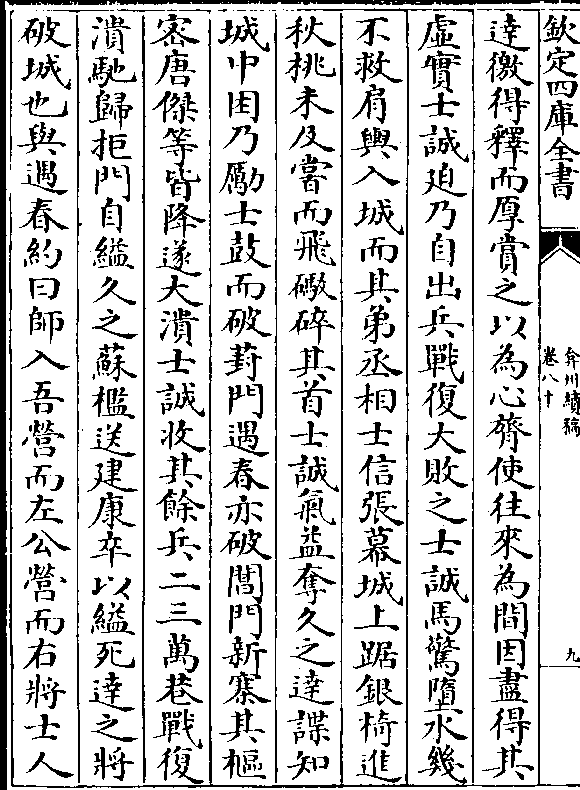 欽定四庫全書
弇州續稿
卷八十
九
達徼得釋而厚賞之以為心膂使往來為間因盡得其
虛實士誠廹乃自出兵戰復大敗之士誠馬驚墮水幾
不救肩輿入城而其弟丞相士信張幕城上踞銀椅進
秋桃未及嘗而飛礮碎其首士誠氣益奪久之達諜知
城中困乃勵士鼓而破葑門遇春亦破閶門新寨其樞
密唐傑等皆降遂大潰士誠收其餘兵二三萬巷戰復
潰馳歸拒門自縊久之蘇檻送建康卒以縊死達之將
破城也與遇春約曰師入吾營而左公營而右將士人